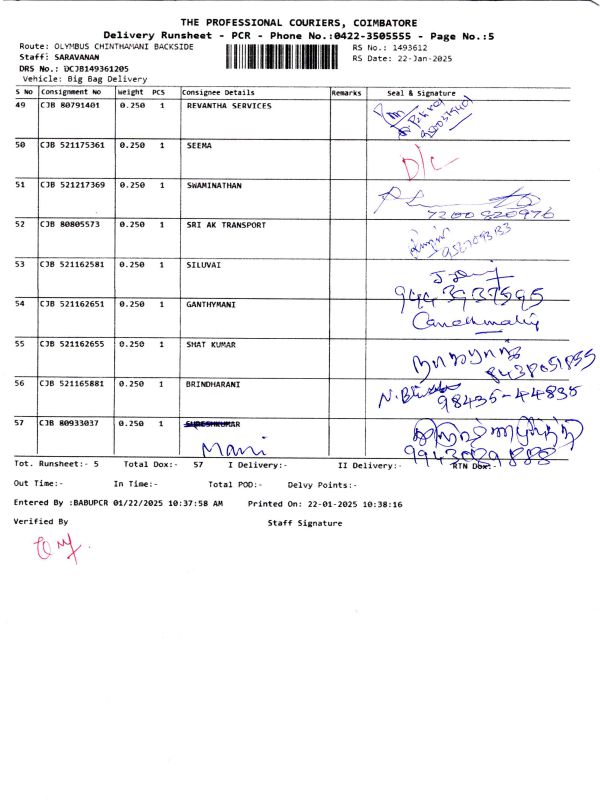 THE PROFESSIONAL COURIERS, COIMBATORE
Delivery Runsheet - PCR - Phone No.:0422-3505555 - Page No.:5
Route: OLYMBUS CHINTHAMANI BACKSIDE RS No.: 1493612
Staff: SARAVANAN RS Date: 22-Jan-2025
DRS No.: DCJB149361205
Vehicle: Big Bag Delivery
S No Consignment No Weight PCS Consignee Details Remarks Seal & Signature
49 CJB 80791401 0.250 1 REVANTHA SERVICES
50 CJB 521175361 0.250 1 SEEMA D/C
51 CJB 521217369 0.250 1 SWAMINATHAN
7200820976
52 CJB 80805573 0.250 1 SRI AK TRANSPORT
53 CJB 521162581 0.250 1 SILUVAI
9443937595
54 CJB 521162651 0.250 1 GANTHYMANI
55 CJB 521162655 0.250 1 SHAT KUMAR
8438051835
56 CJB 521165881 0.250 1 BRINDHARANI
98435-44835
57 CJB 80933037 0.250 1 SURESHKUMAR
Mani 9943089888
Tot. Runsheet:- 5 Total Dox:- 57 I Delivery:- II Delivery:- RTN Dox:-
Out Time:- In Time:- Total POD:- Delvy Points:-
Entered By :BABUPCR 01/22/2025 10:37:58 AM Printed On: 22-01-2025 10:38:16
Verified By Staff Signature